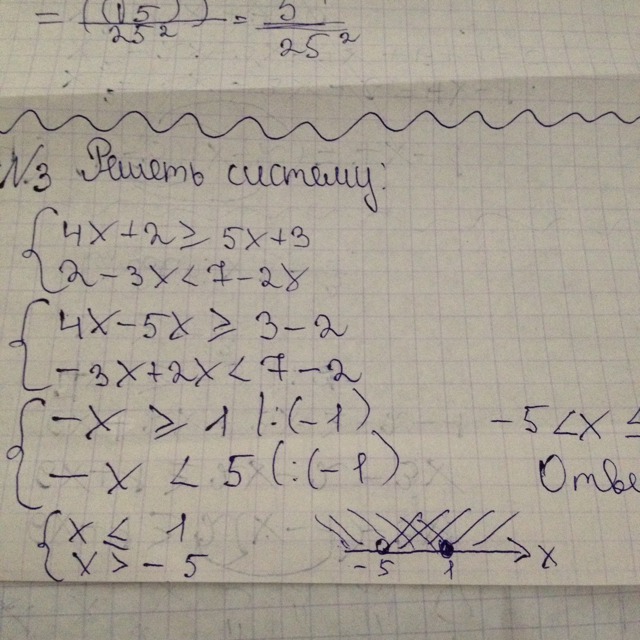 = ((√5) )) / 25² = 5 / 25²
N.3 Решеть систему:
4x+2 ≥ 5x+3
2-3x < 7-2x
4x-5x ≥ 3-2
-3x+2x < 7-2
-x ≥ 1 |:(-1)
-x < 5 (:(-1)
-5 < x ≤
Отве
x ≤ 1
x > -5
-5 1 x